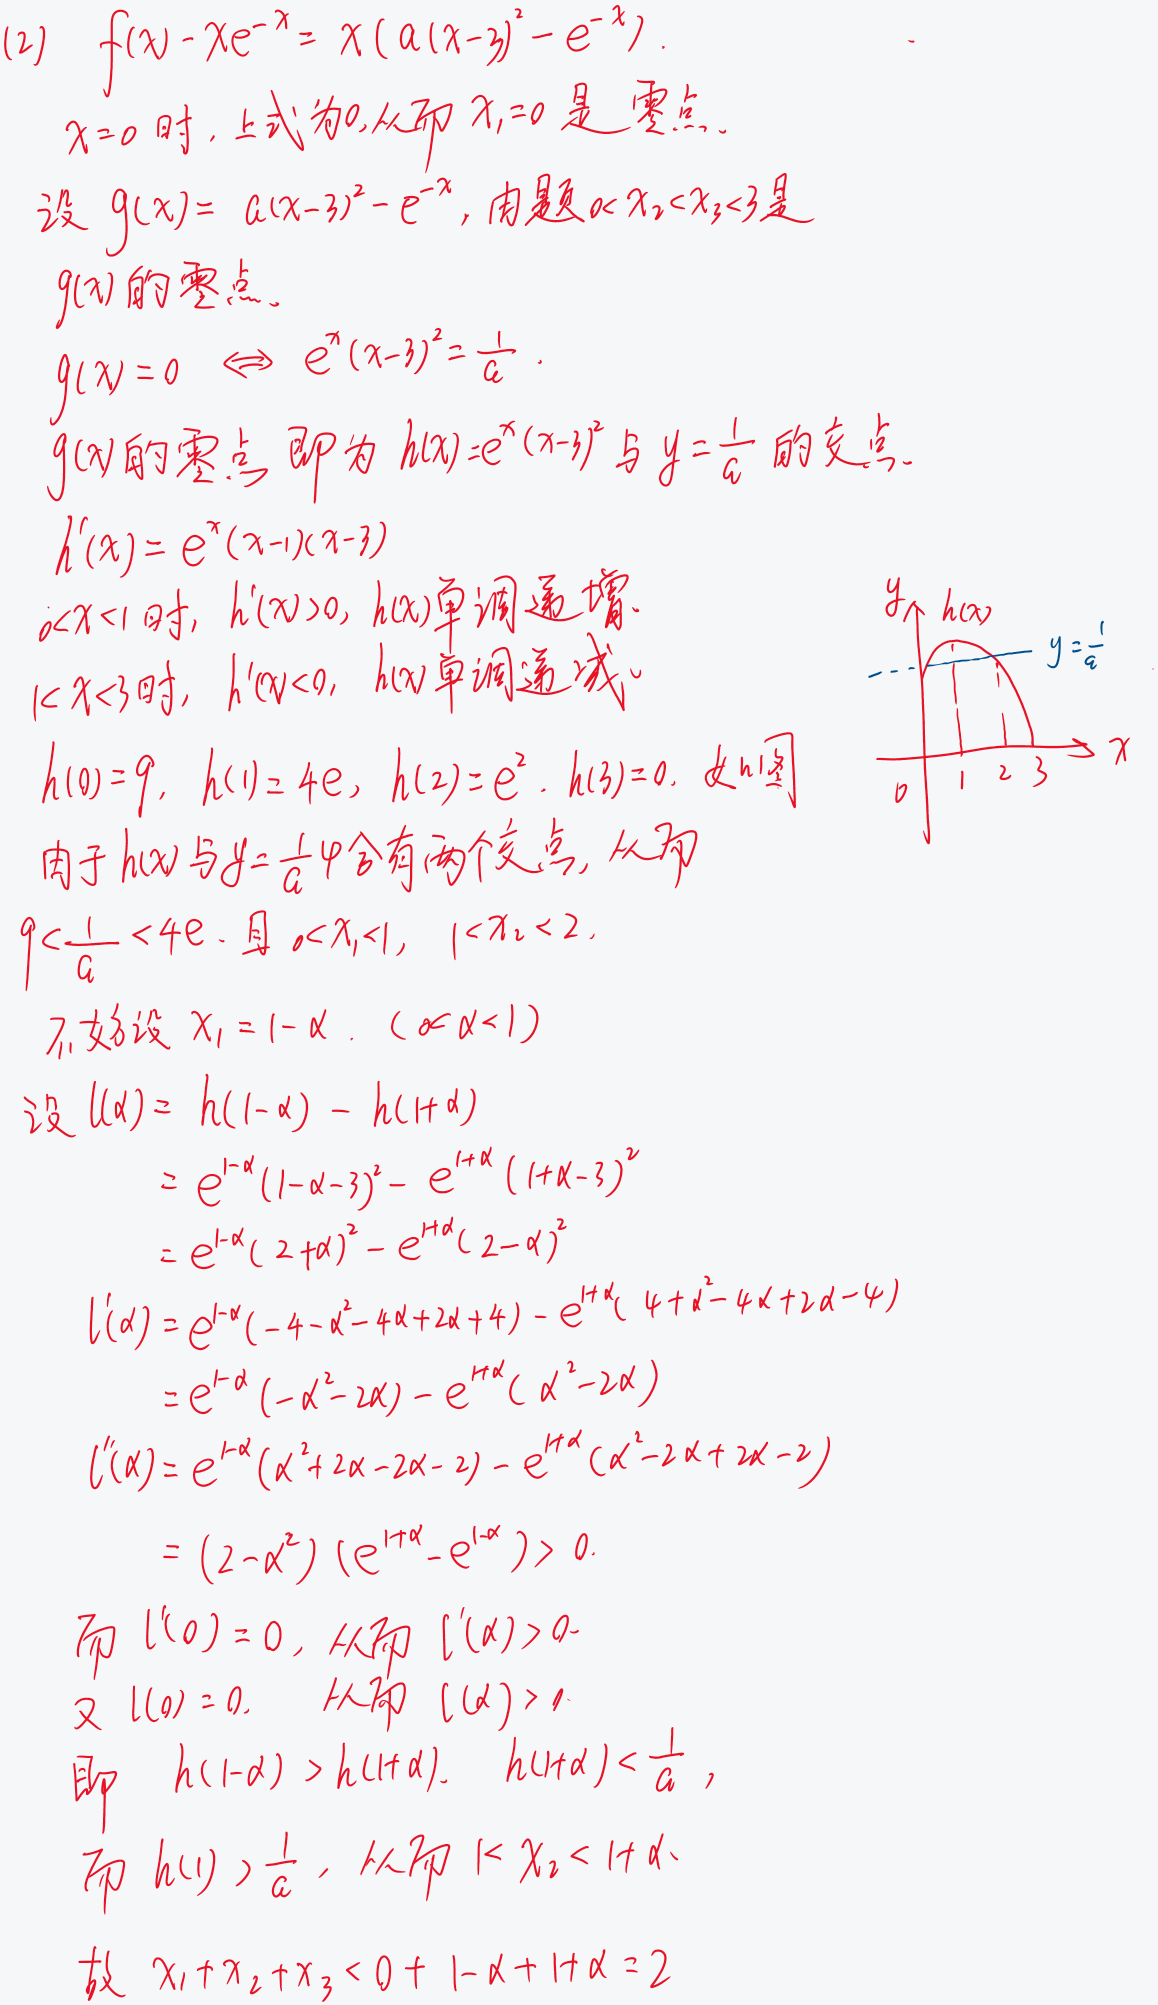 (2) f(x)-xe^{-x}=x(a(x-3)^2-e^{-x}).
x=0时,上式为0,从而x₁=0是零点.
设g(x)=a(x-3)^2-e^{-x},由题0<x₂<x₃<3是
g(x)的零点.
g(x)=0 ⇔ e^x(x-3)^2=1/a.
g(x)的零点即为h(x)=e^x(x-3)^2与y=1/a的交点.
h'(x)=e^x(x-1)(x-3)
0<x<1时, h'(x)>0, h(x)单调递增.
1<x<3时, h'(x)<0, h(x)单调递减.
h(0)=9, h(1)=4e, h(2)=e^2. h(3)=0. 如图
y h(x) y=1/a
0 1 2 3 x
由于h(x)与y=1/a恰有两个交点,从而
9<1/a<4e.且0<x₁<1, 1<x₂<2.
不妨设x₁=1-α. (0<α<1)
设l(α)=h(1-α)-h(1+α)
=e^{1-α}(1-α-3)^2-e^{1+α}(1+α-3)^2
=e^{1-α}(2+α)^2-e^{1+α}(2-α)^2
l'(α)=e^{1-α}(-4-α^2-4α+2α+4)-e^{1+α}(4+α^2-4α+2α-4)
=e^{1-α}(-α^2-2α)-e^{1+α}(α^2-2α)
l''(α)=e^{1-α}(α^2+2α-2α-2)-e^{1+α}(α^2-2α+2α-2)
=(2-α^2)(e^{1+α}-e^{1-α})>0.
而l'(0)=0,从而l'(α)>0.
又l(0)=0. 从而l(α)>0.
即 h(1-α)>h(1+α). h(1+α)<1/a,
而h(1)>1/a,从而1<x₂<1+α.
故 x₁+x₂+x₃<0+1-α+1+α=2